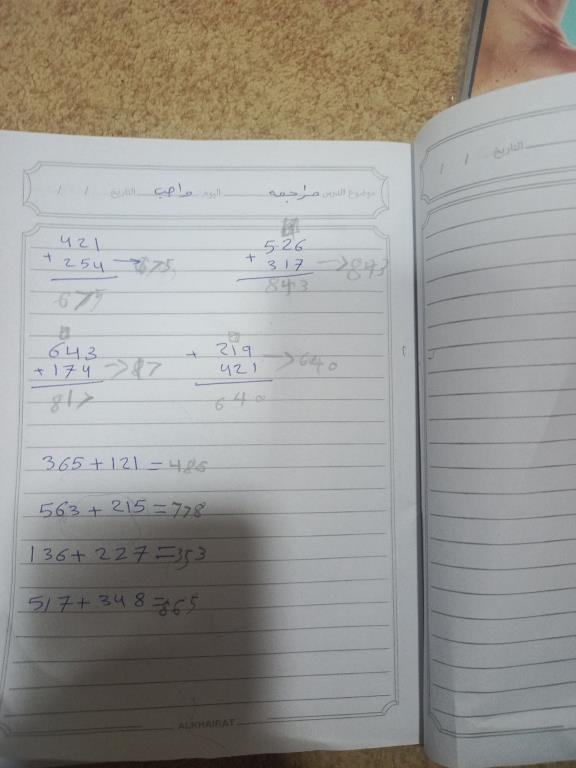 موضوع الدرس مراجعه اليوم واجب التاريخ / /
التاريخ / /
421 526
+ 254 → 675 + 317 → 843
675 843
643 + 219
+ 174 → 817 421 → 640
817 640
365 + 121 = 486
563 + 215 = 778
136 + 227 = 353
517 + 348 = 865
ALKHAIRAT